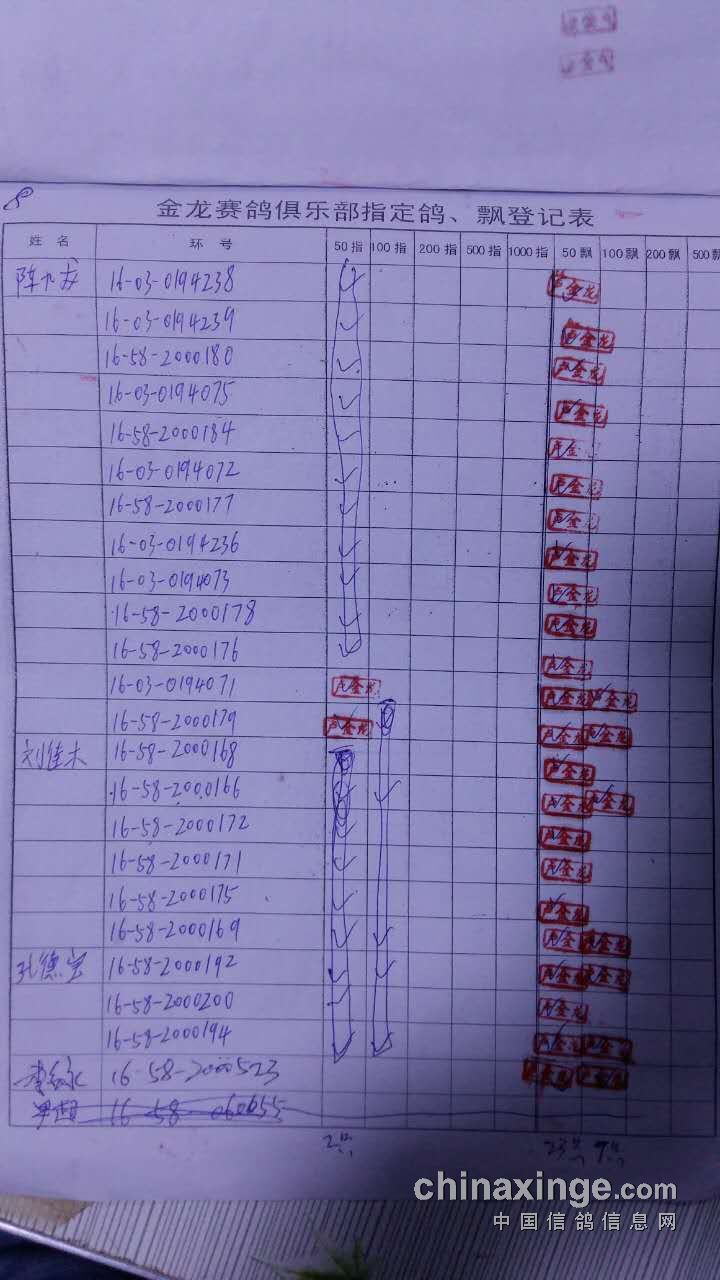 8
金龙赛鸽俱乐部指定鸽、飘登记表
姓名 环号 50指 100指 200指 500指 1000指 50飘 100飘 200飘 500飘
16-03-0194238
16-03-0194239 卢金龙
16-58-2000180 卢金龙
16-03-0194075 卢金龙
16-58-2000184 卢金
16-03-0194072 卢金龙
16-58-2000177 卢金龙
16-03-0194236 卢金龙
16-03-0194073 卢金龙
16-58-2000178 卢金龙
16-58-2000176 卢金龙
16-03-0194071 卢金龙 卢金龙 卢金龙
16-58-2000179 卢金龙 卢金龙 卢金龙
刘佳木 16-58-2000168 卢金龙
16-58-2000166 卢金龙 卢金龙
16-58-2000172 卢金龙
16-58-2000171 卢金龙
16-58-2000175 卢金龙
16-58-2000169 卢金 卢金龙
孔德宝 16-58-2000192 卢金龙 卢金龙
16-58-2000200 卢金龙
16-58-2000194 卢金龙 卢金龙
16-58-2000523
16-58-060655
chinaxinge.com
中国信鸽信息网